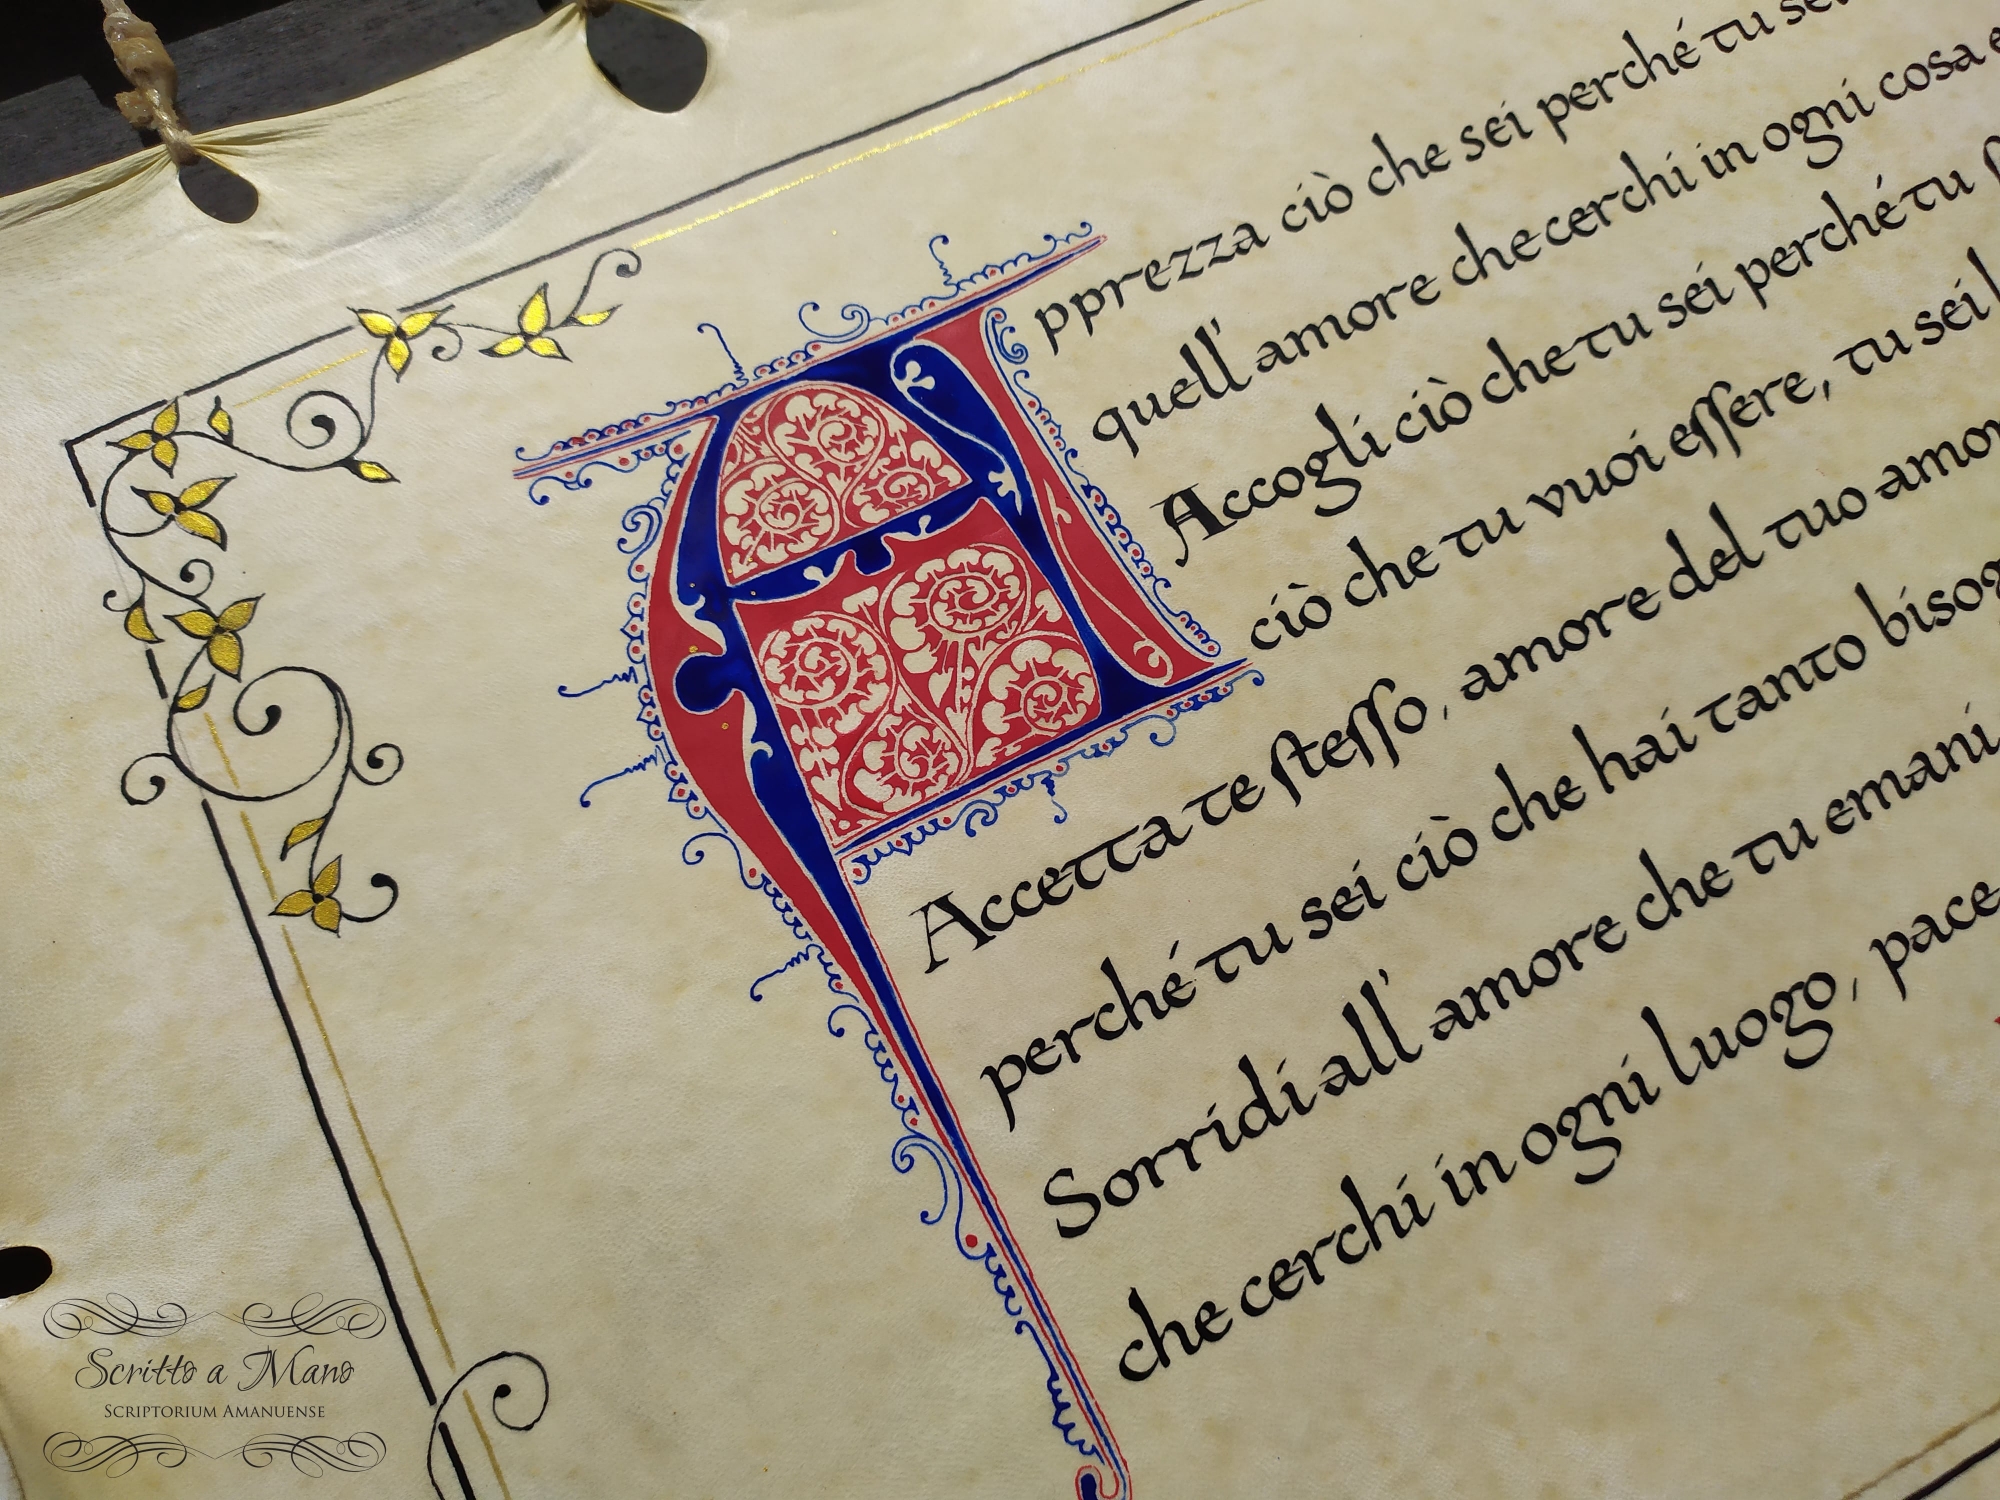 Apprezza ciò che sei perché tu sei
quell'amore che cerchi in ogni cosa e
Accogli ciò che tu sei perché tu
ciò che tu vuoi eſſere, tu sei l
Accetta te ſteſſo, amore del tuo amor
perché tu sei ciò che hai tanto bisog
Sorridi all'amore che tu emani
che cerchi in ogni luogo, pace
Scritto a Mano
Scriptorium Amanuense